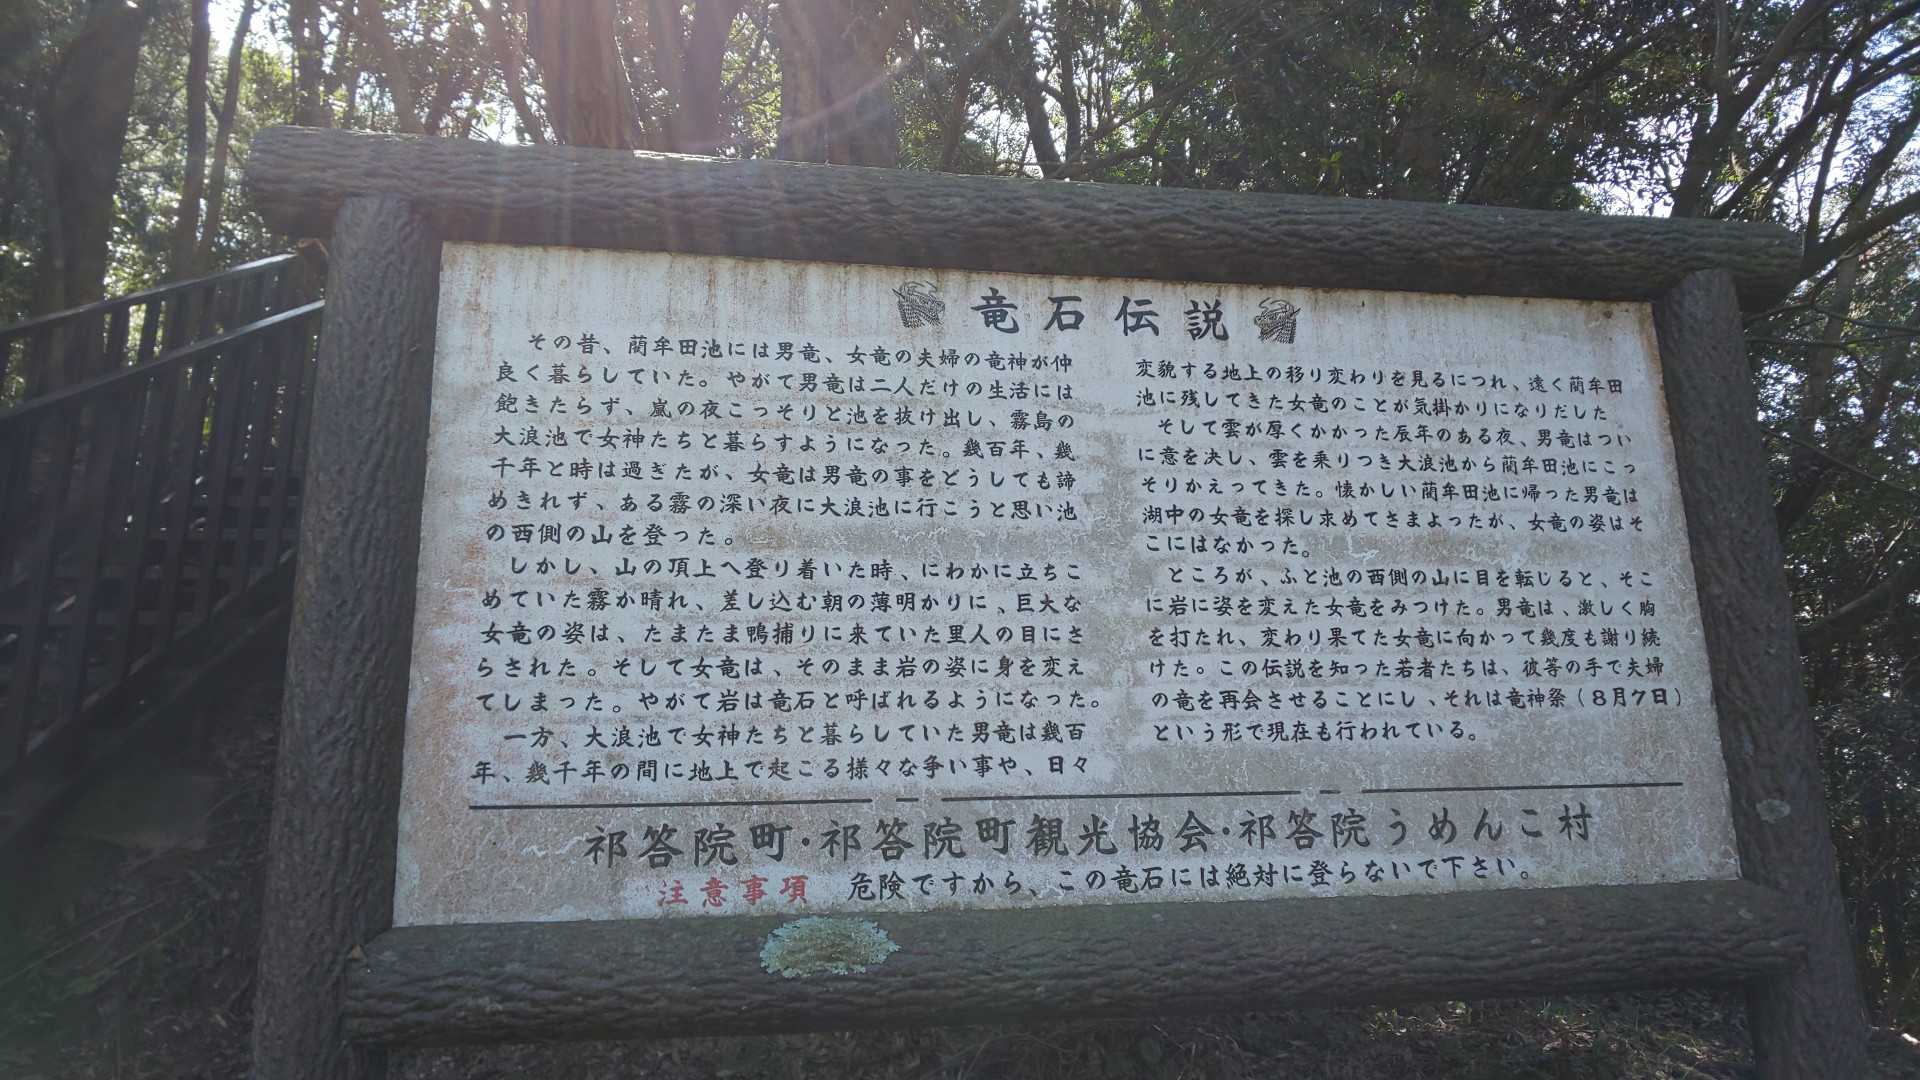 竜石伝説
その昔、藺牟田池には男竜、女竜の夫婦の竜神が仲
良く暮らしていた。やがて男竜は二人だけの生活には
飽きたらず、嵐の夜こっそりと池を抜け出し、霧島の
大浪池で女神たちと暮らすようになった。幾百年、幾
千年と時は過ぎたが、女竜は男竜の事をどうしても諦
めきれず、ある霧の深い夜に大浪池に行こうと思い池
の西側の山を登った。
しかし、山の頂上へ登り着いた時、にわかに立ちこ
めていた霧か晴れ、差し込む朝の薄明かりに、巨大な
女竜の姿は、たまたま鴨捕りに来ていた里人の目にさ
らされた。そして女竜は、そのまま岩の姿に身を変え
てしまった。やがて岩は竜石と呼ばれるようになった。
一方、大浪池で女神たちと暮らしていた男竜は幾百
年、幾千年の間に地上で起こる様々な争い事や、日々
変貌する地上の移り変わりを見るにつれ、遠く藺牟田
池に残してきた女竜のことが気掛かりになりだした
そして雲が厚くかかった辰年のある夜、男竜はつい
に意を決し、雲を乗りつき大浪池から藺牟田池にこっ
そりかえってきた。懐かしい藺牟田池に帰った男竜は
湖中の女竜を探し求めてさまよったが、女竜の姿はそ
こにはなかった。
ところが、ふと池の西側の山に目を転じると、そこ
に岩に姿を変えた女竜をみつけた。男竜は、激しく胸
を打たれ、変わり果てた女竜に向かって幾度も謝り続
けた。この伝説を知った若者たちは、彼等の手で夫婦
の竜を再会させることにし、それは竜神祭（8月7日）
という形で現在も行われている。
祁答院町・祁答院町観光協会・祁答院うめんこ村
注意事項 危険ですから、この竜石には絶対に登らないで下さい。